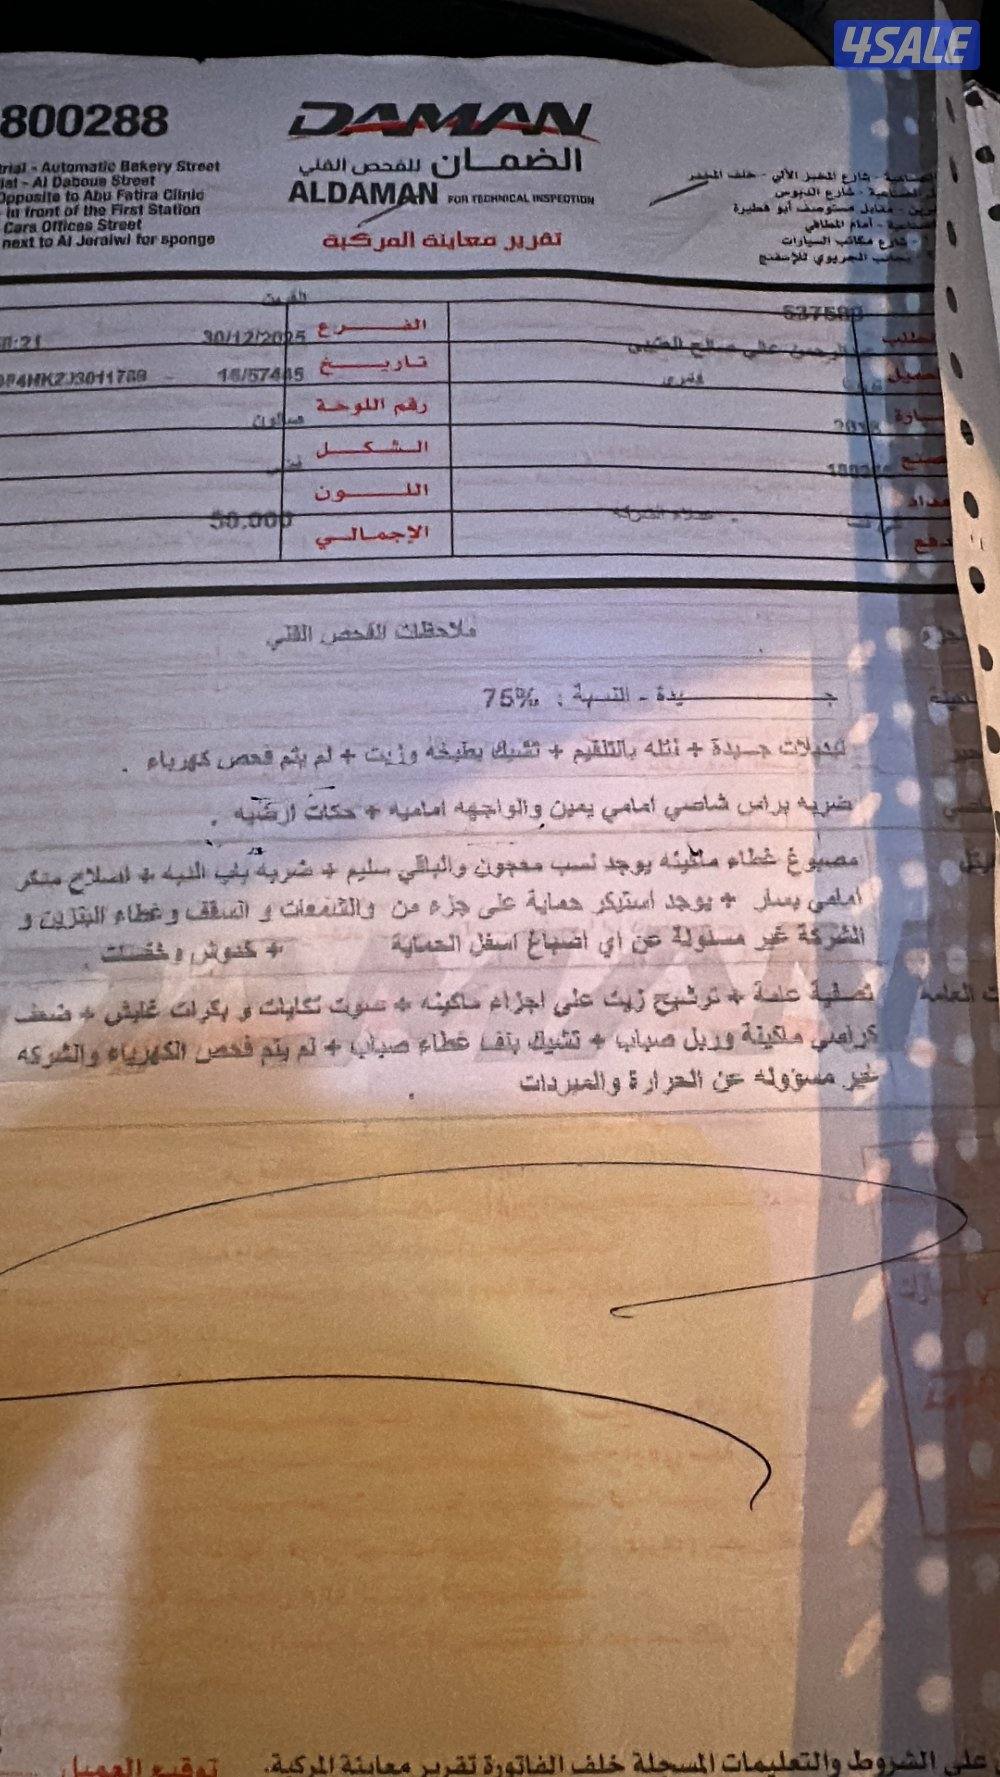 4SALE
800288
DAMAN
الضمان للفحص الفني
ALDAMAN FOR TECHNICAL INSPECTION
تقرير معاينة المركبة
trial - Automatic Bakery Street
ial - Al Dabous Street
Opposite to Abu Fatira Clinic
in front of the First Station
Cars Offices Street
next to Al Jeraiwi for sponge
الصناعية - شارع المخبز الآلي - خلف المخفر
الصناعية - شارع الدبوس
مقابل مستوصف أبو فطيرة
الصناعية - أمام المطافي
شارع مكاتب السيارات
بجانب الجريوي للإسفنج
537580
الفرع
30/12/2025
تاريخ
16/57445
رقم اللوحة
صالون
الشكل
اللون
50.000
الإجمالي
ملاحظات الفحص الفني
جيدة - النسبة : 75%
تبديلات جيدة + نتله بالتلقيم + تشيك بطيخه وزيت + لم يتم فحص كهرباء .
ضربه براس شاصي امامي يمين والواجهه اماميه + حكات ارضيه .
مصبوغ غطاء ماكينه يوجد نسب معجون والباقي سليم + ضربه بباب النيه + اصلاح منكر
امامي يسار + يوجد استيكر حماية على جزء من والشمعات و السقف وغطاء البنزين و
الشركة غير مسئولة عن اي اصباغ اسفل الحماية + كدوش وخشات .
تصفية عامة + ترشيح زيت على اجزاء ماكينه + صوت تكايات و بكرات غليش + ضعف
كراسي ماكينة وربل صباب + تشيك بنف غطاء صباب + لم يتم فحص الكهرباء والشركه
غير مسؤوله عن الحرارة والمبردات .
على الشروط والتعليمات المسجلة خلف الفاتورة تقرير معاينة المركبة. توقيع العميل